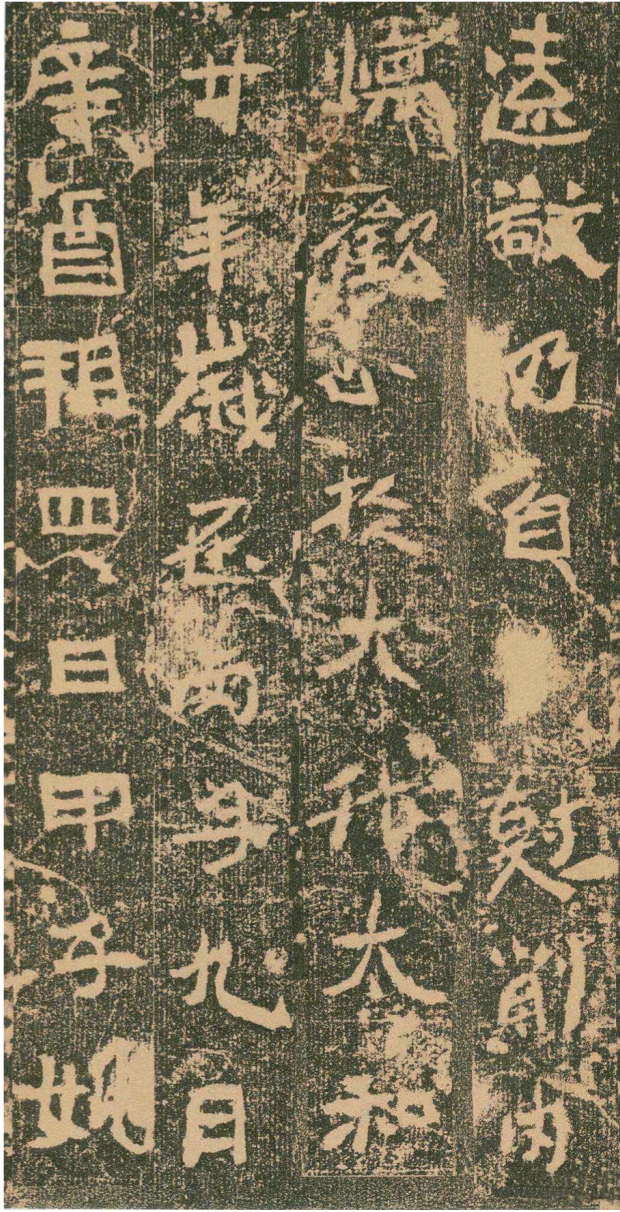 遠敬乃自尅削內
懷歡心於大代太和
廿年歲在丙子九月
辛酉朔四日甲子姚